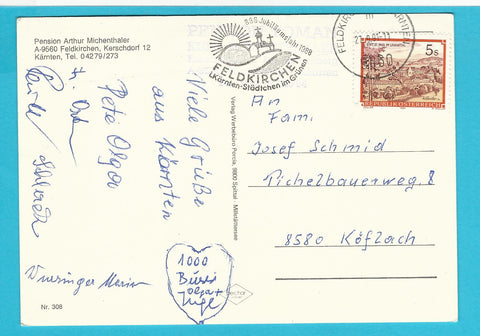 Pension Arthur Michenthaler
A-9560 Feldkirchen, Kerschdorf 12
Kärnten, Tel. 04279/273
Viele Grüße
aus Kärnten
Pete Olga
Nr. 306
Verlag Werbebüro Porcia, 9800 Spittal - Millstättersee
Jubiläumsjahr 1988
FELDKIRCHEN
i.Kärnten-Städtchen im Grünen
FELDKIRCHEN
5s
REPUBLIK ÖSTERREICH
An
Fam.
Josef Schmid
Pichelbauerweg. 8
8580 Köflach
1000
Bussi
Olga +